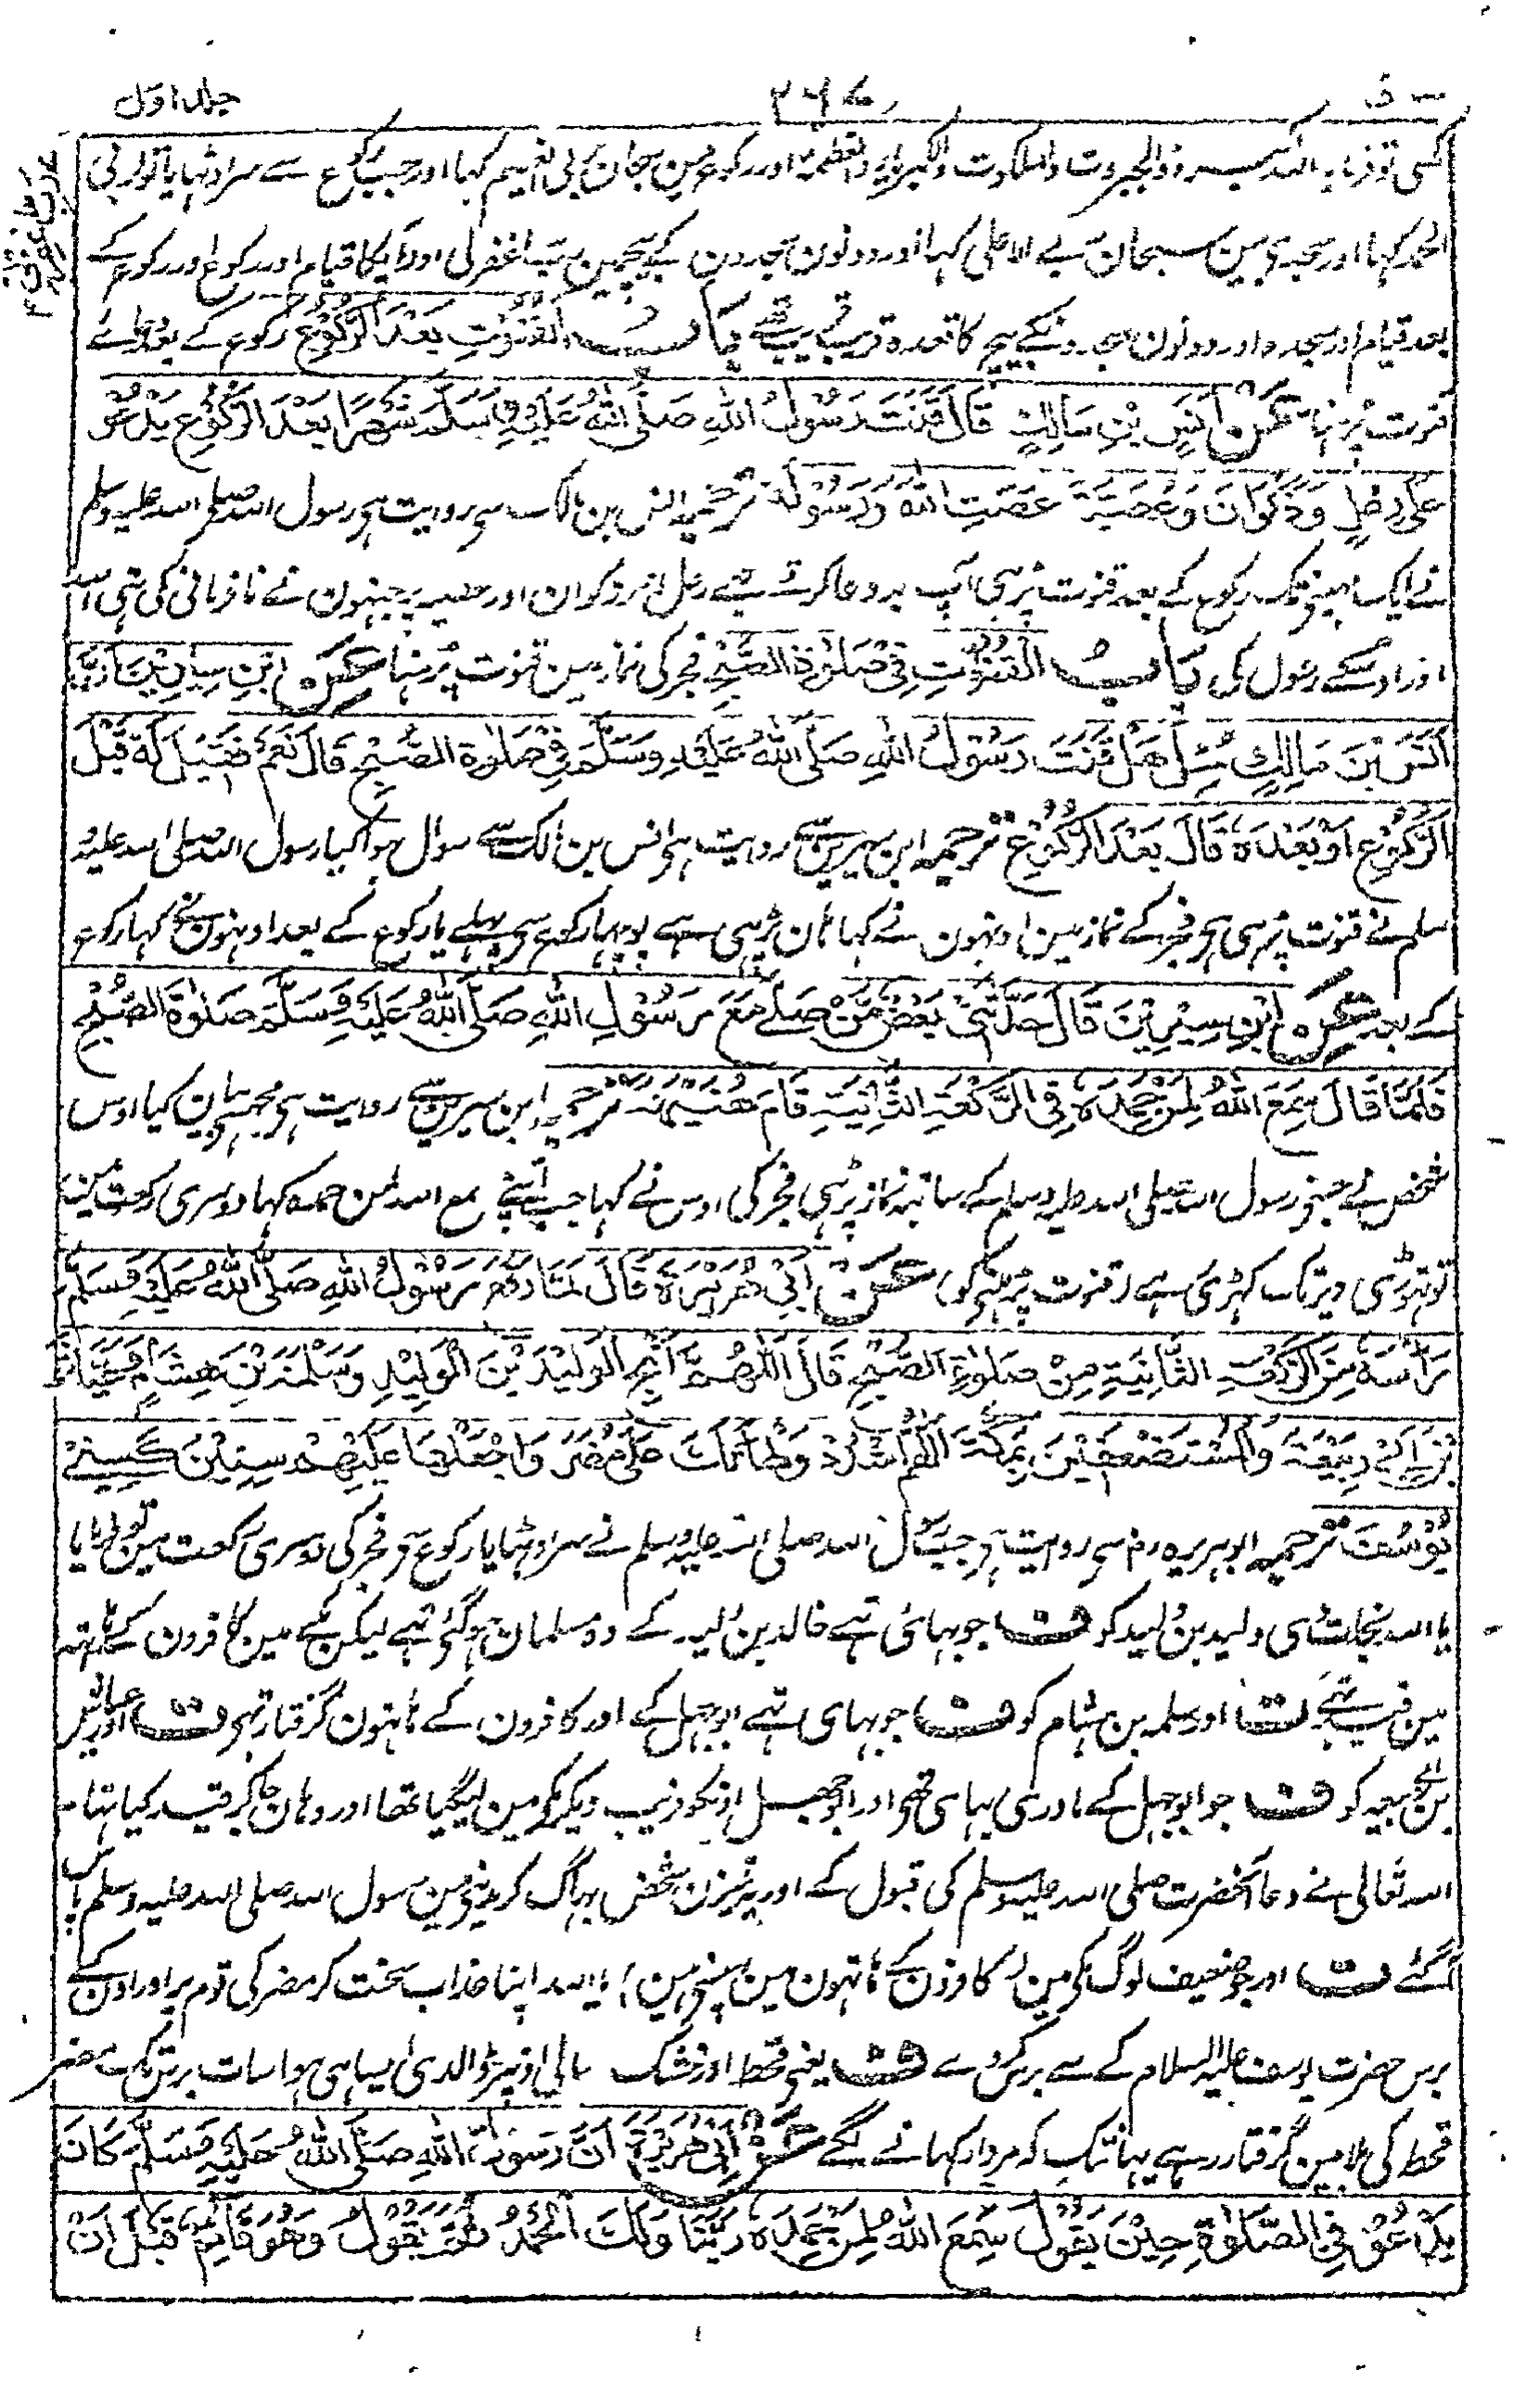 ۳۶۷ جلد اول
کسی تو فرمایا اللہ اکبر ذو الجبروت والملکوت والکبریاء والعظمۃ اور رکوع مین سبحان ربی العظیم کہا اور جب رکوع سے سر اوٹہایا تو لربی
الحمد کہا اور سجدی مین سبحان ربی الاعلی کہا اور دونون سجدون کے بیچمین رب اغفرلی اور آپکا قیام اور رکوع اور رکوع کے
بعد قیام اور سجدہ اور دونون سجدونکے بیچ کا قعدہ قریب قریب تہے بَابُ الْقُنُوْتِ بَعْدَ الرُّكُوْعِ رکوع کے بعد دعائے
قنوت پڑہنا عَنْ اَنَسِ بْنِ مَالِكٍ قَالَ قَنَتَ رَسُوْلُ اللهِ صَلَّى اللهُ عَلَيْهِ وَسَلَّمَ شَهْرًا بَعْدَ الرُّكُوْعِ يَدْعُوْ
عَلٰى رِعْلٍ وَذَكْوَانَ وَعُصَيَّةَ عَصَتِ اللهَ وَرَسُوْلَهٗ ترجمہ انس بن مالک سی روایت ہی رسول اللہ صلی اللہ علیہ وسلم
نے ایک مہینے تک رکوع کے بعد قنوت پڑہی آپ بددعا کرتے تہے رعل اور ذکوان اور عصیہ پر جنہون نے نافرمانی کی تہی اللہ
اور اوسکے رسول کی بَابُ الْقُنُوْتِ فِيْ صَلٰوةِ الصُّبْحِ فجر کی نماز مین قنوت پڑہنا عَنِ ابْنِ سِيْرِيْنَ اَنَّ
اَنَسَ بْنَ مَالِكٍ سُئِلَ هَلْ قَنَتَ رَسُوْلُ اللهِ صَلَّى اللهُ عَلَيْهِ وَسَلَّمَ فِيْ صَلٰوةِ الصُّبْحِ قَالَ نَعَمْ فَقِيْلَ لَهٗ قَبْلَ
الرُّكُوْعِ اَوْ بَعْدَهٗ قَالَ بَعْدَ الرُّكُوْعِ ترجمہ ابن سیرین سے روایت ہی انس بن مالک سے سوال ہوا کیا رسول اللہ صلی اللہ علیہ
سلم نے قنوت پڑہی ہی فجر کے نماز مین اونہون نے کہا ہان پڑہی ہے پوچہا رکوع سی پہلے یا رکوع کے بعد اونہون نے کہا رکوع
کے بعد عَنِ ابْنِ سِيْرِيْنَ قَالَ حَدَّثَنِيْ بَعْضُ مَنْ صَلّٰى مَعَ رَسُوْلِ اللهِ صَلَّى اللهُ عَلَيْهِ وَسَلَّمَ صَلٰوةَ الصُّبْحِ
فَلَمَّا قَالَ سَمِعَ اللهُ لِمَنْ حَمِدَهٗ فِي الرَّكْعَةِ الثَّانِيَةِ قَامَ هُنَيْهَةً ترجمہ ابن سیرین سے روایت ہی مجہسے بیان کیا اوس
شخص نے جسنے رسول اللہ صلی اللہ علیہ وسلم کے ساتہہ نماز پڑہی فجر کی اوس نے کہا جب آپنے سمع اللہ لمن حمدہ کہا دوسری رکعت مین
تو تہوڑی دیر تک کہڑی رہے (قنوت پڑہنے کو) عَنْ اَبِيْ هُرَيْرَةَ قَالَ لَمَّا رَفَعَ رَسُوْلُ اللهِ صَلَّى اللهُ عَلَيْهِ وَسَلَّمَ
رَاْسَهٗ مِنَ الرَّكْعَةِ الثَّانِيَةِ مِنْ صَلٰوةِ الصُّبْحِ قَالَ اَللّٰهُمَّ اَنْجِ الْوَلِيْدَ بْنَ الْوَلِيْدِ وَسَلَمَةَ بْنَ هِشَامٍ وَعَيَّاشَ
بْنَ اَبِيْ رَبِيْعَةَ وَالْمُسْتَضْعَفِيْنَ بِمَكَّةَ اَللّٰهُمَّ اشْدُدْ وَطْاَتَكَ عَلٰى مُضَرَ وَاجْعَلْهَا عَلَيْهِمْ سِنِيْنَ كَسِنِيْ
يُوْسُفَ ترجمہ ابو ہریرہ رض سی روایت ہی جب رسول اللہ صلی اللہ علیہ وسلم نے سر اوٹہایا رکوع سی فجر کی دوسری رکعت مین تو فرمایا
یا اللہ نجات دی ولید بن ولید کو ف جو بہائی تہے خالد بن ولید کے وہ مسلمان ہو گئی تہے لیکن مکے مین کافرون کے ہاتہہ
مین قید تہے ت اور سلمہ بن ہشام کو ف جو بہائی تہے ابو جہل کے اور کافرون کے ہاتہون گرفتار تہی ت اور عیاش
بن ابی ربیعہ کو ف جو ابو جہل کے مادری بہائی تہی اور ابو جہل اونکو فریب دیکر مکہ مین لیگیا تہا اور وہان جا کر قید کیا تہا
اللہ تعالی نے دعا آنحضرت صلی اللہ علیہ وسلم کی قبول کے اور یہ تینون شخص بہاگ کر مدینی مین رسول اللہ صلی اللہ علیہ وسلم پاس
آگئے ت اور جو ضعیف لوگ مکی مین (کافرون کے ہاتہون مین پہنسے ہین) یا اللہ اپنا عذاب سخت کر مضر کی قوم پر اور اون کے
برس حضرت یوسف علیہ السلام کے سے برس کر دے ف یعنی قحط اور خشک سالی اونپر ڈالدی ایسا ہی ہوا سات برس تک مضر
قحط کی بلا مین گرفتار رہے یہانتک کہ مردار کہانے لگے عَنْ اَبِيْ هُرَيْرَةَ اَنَّ رَسُوْلَ اللهِ صَلَّى اللهُ عَلَيْهِ وَسَلَّمَ كَانَ
يَدْعُوْ فِي الصَّلٰوةِ حِيْنَ يَقُوْلُ سَمِعَ اللهُ لِمَنْ حَمِدَهٗ رَبَّنَا وَلَكَ الْحَمْدُ ثُمَّ يَقُوْلُ وَهُوَ قَائِمٌ قَبْلَ اَنْ